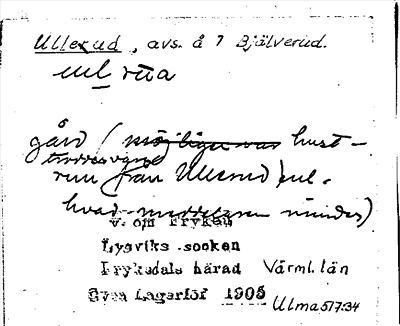 Ullerud, avs. å 7 Bjälverud.
ul rua
gård (möjligen var hust-
troddes vara
run från Ullerud) enl.
hvad meddelaren mindes)
V. om Fryken
Lysviks socken
Fryksdals härad Värml. län
Sven Lagerlöf 1905
Ulma 517:34